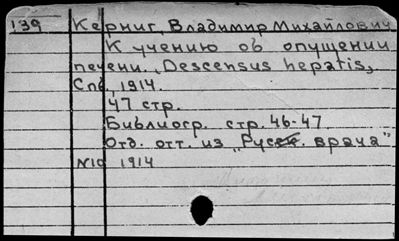 139 Керниг, Владимир Михайлович
К учению об опущении
печени. „Descensus hepatis„
Спб., 1914.
47 стр.
Библиогр. стр. 46-47
Отд. отт. из „Русск. врача"
N10 1914